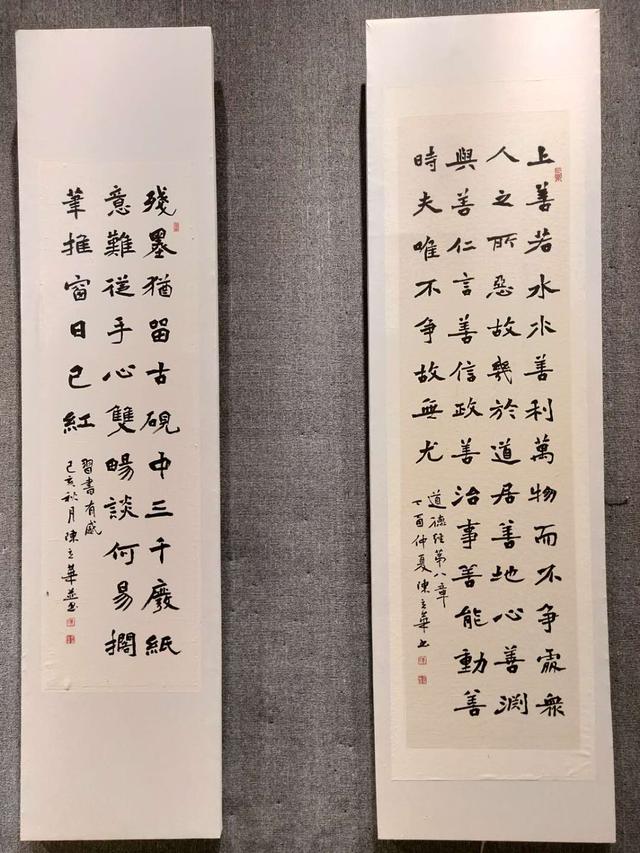 上善若水水善利萬物而不争處衆
人之所惡故幾於道居善地心善渊
與善仁言善信政善治事善能動善
時夫唯不争故無尤
道德经第八章
丁酉仲夏陳立華书
殘墨猶留古硯中三千廢紙
意難從手心雙暢談何易擱
筆推窗日已紅
習書有感
己亥秋月陳立華並书